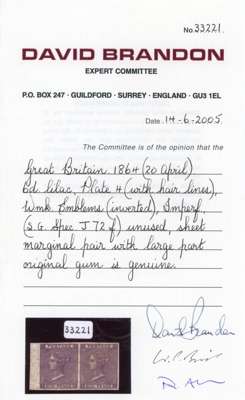 No. 33221
DAVID BRANDON
EXPERT COMMITTEE
P.O. BOX 247 · GUILDFORD · SURREY · ENGLAND · GU3 1EL
Date 14-6-2005
The Committee is of the opinion that the
Great Britain 1864 (20 April)
6d lilac, Plate 4 (with hair lines),
Wmk. Emblems (inverted), Imperf,
(S.G. Spec J72f) unused, sheet
marginal pair with large part
original gum is genuine.
David Brandon
33221